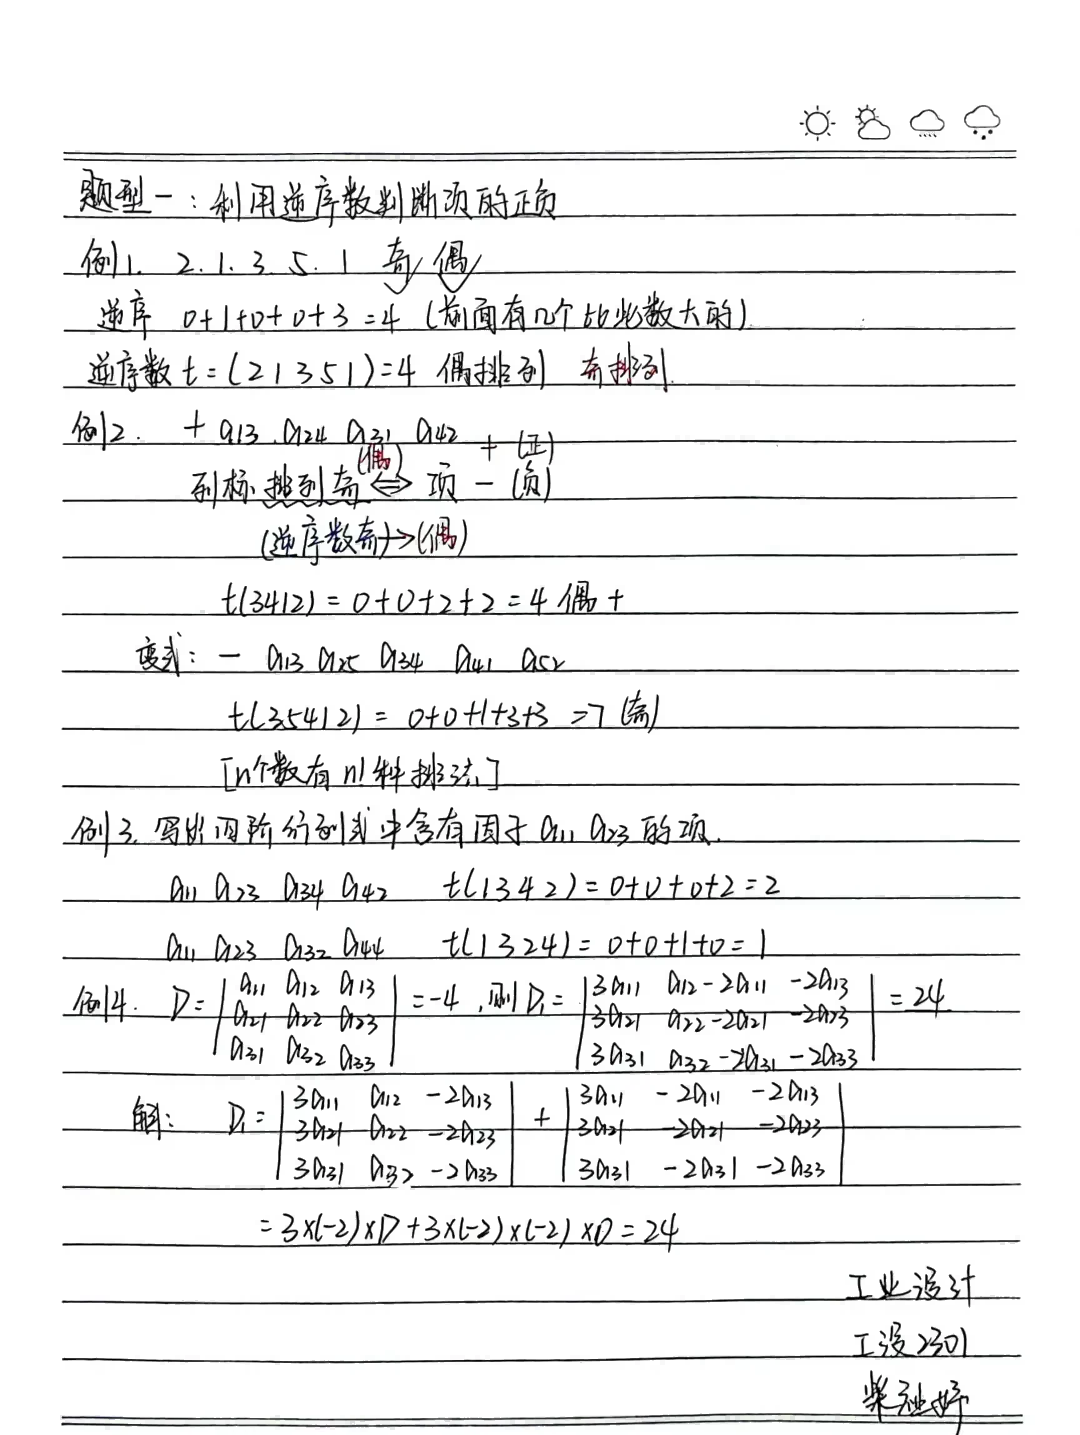 题型一：利用逆序数判断项的正负
例1. 2.1.3.5.1 奇 偶
逆序 0+1+0+0+3=4 (前面有几个比此数大的)
逆序数 t=(21351)=4 偶排列 奇排列
例2. + a13 a24 a31 a42
(偶) + (正)
列标排列奇 ⇔ 项 - (负)
(逆序数奇)→(偶)
t(3412)=0+0+2+2=4 偶 +
变式：- a13 a25 a34 a41 a52
t(35412)=0+0+1+3+3=7 (奇)
[n个数有n!种排法]
例3. 写出四阶行列式中含有因子a11 a23的项.
a11 a23 a34 a42 t(1342)=0+0+0+2=2
a11 a23 a32 a44 t(1324)=0+0+1+0=1
例4. D=|a11 a12 a13| =-4，则D1=|3a11 a12-2a11 -2a13| =24
|a21 a22 a23| |3a21 a22-2a21 -2a23|
|a31 a32 a33| |3a31 a32-2a31 -2a33|
解： D1=|3a11 a12 -2a13| + |3a11 -2a11 -2a13|
|3a21 a22 -2a23| |3a21 -2a21 -2a23|
|3a31 a32 -2a33| |3a31 -2a31 -2a33|
=3×(-2)×D+3×(-2)×(-2)×D=24
工业设计
工设2301
柴